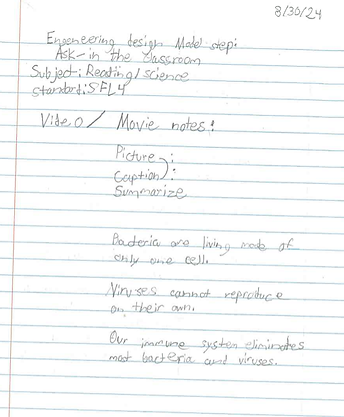 8/30/24
Engeneering design Model step:
Ask-in the classroom
Subject: Reading/science
Standard: SFL4
Video/ Movie notes:
Picture:
Caption:
Summarize
Bacteria are living made of
only one cell.
Viruses cannot reproduce
on their own.
Our immune system eliminates
most bacteria and viruses.